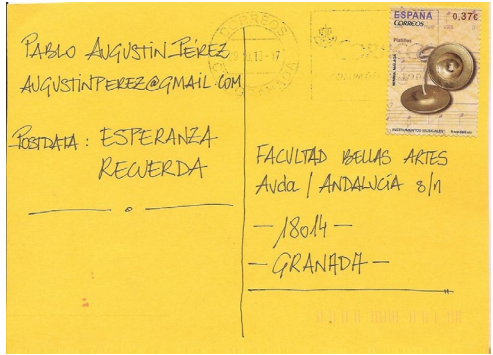 PABLO AUGUSTIN PÉREZ
AUGUSTINPEREZ@GMAIL.COM
POSTDATA: ESPERANZA
RECUERDA
CORREOS
ESPAÑA 0,37€
CORREOS
Platillos
INSTRUMENTOS MUSICALES
FACULTAD BELLAS ARTES
Avda/ ANDALUCÍA s/n
-18014-
-GRANADA-